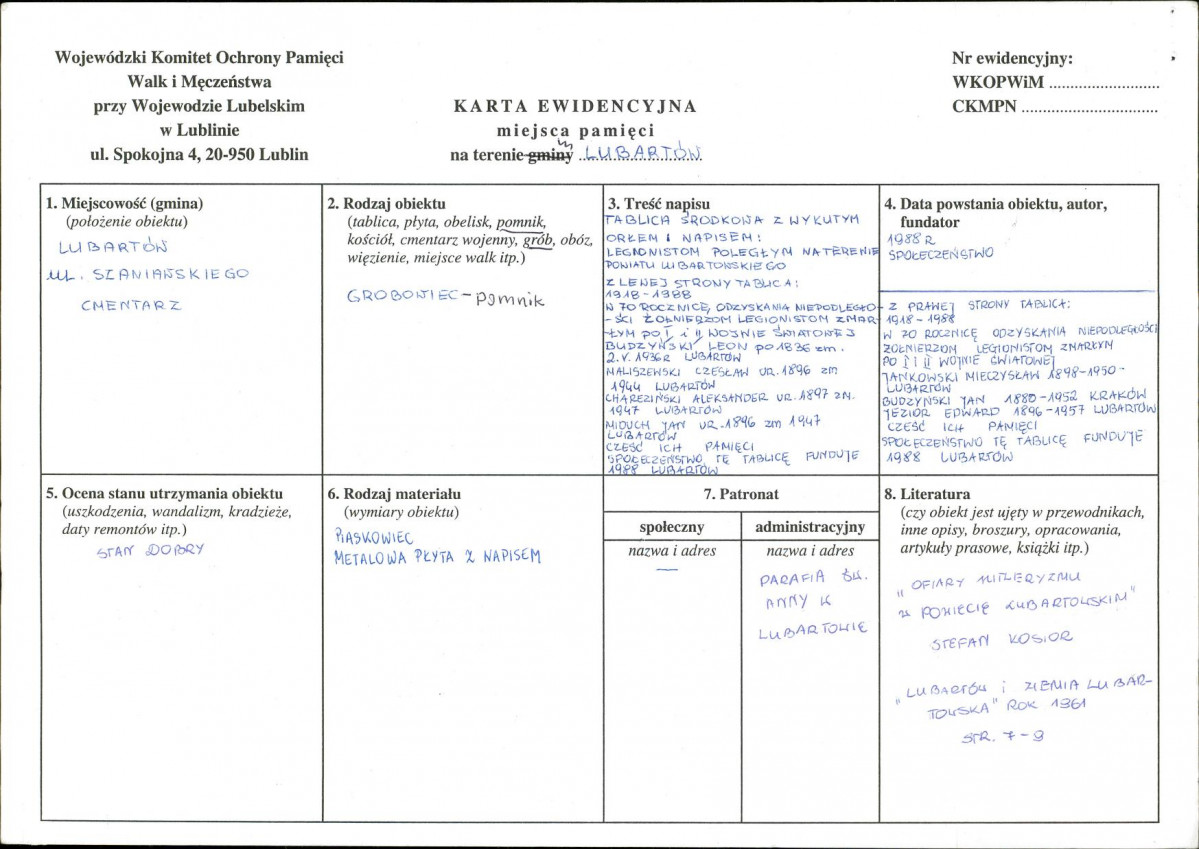 Wojewódzki Komitet Ochrony Pamięci
Walk i Męczeństwa
przy Wojewodzie Lubelskim
w Lublinie
ul. Spokojna 4, 20-950 Lublin
KARTA EWIDENCYJNA
miejsca pamięci
na terenie gminy LUBARTÓW
Nr ewidencyjny:
WKOPWiM ...........................
CKMPN ..................................
1. Miejscowość (gmina)
(położenie obiektu)
LUBARTÓW
UL. SZANIAŃSKIEGO
CMENTARZ
2. Rodzaj obiektu
(tablica, płyta, obelisk, pomnik,
kościół, cmentarz wojenny, grób, obóz,
więzienie, miejsce walk itp.)
GROBOWIEC – pomnik
3. Treść napisu
TABLICA ŚRODKOWA Z WYKUTYM
ORŁEM I NAPISEM:
LEGIONISTOM POLEGŁYM NA TERENIE
POWIATU LUBARTOWSKIEGO
Z LEWEJ STRONY TABLICA:
1918 - 1988
W 70 ROCZNICĘ ODZYSKANIA NIEPODLEGŁO-
-ŚCI ŻOŁNIERZOM LEGIONISTOM ZMAR-
ŁYM PO I i II WOJNIE ŚWIATOWEJ
BUDZYŃSKI LEON po 1836 zm.
2.V.1936r LUBARTÓW
MALISZEWSKI CZESŁAW UR. 1896 zm
1944 LUBARTÓW
CHAREZIŃSKI ALEKSANDER UR. 1897 ZM.
1947 LUBARTÓW
MIDUCH JAN UR. 1896 zm 1947
LUBARTÓW
CZEŚĆ ICH PAMIĘCI
SPOŁECZEŃSTWO TĘ TABLICĘ FUNDUJE
1988 LUBARTÓW
4. Data powstania obiektu, autor,
fundator
1988 R
SPOŁECZEŃSTWO
Z PRAWEJ STRONY TABLICA:
1918 - 1988
W 70 ROCZNICĘ ODZYSKANIA NIEPODLEGŁOŚCI
ŻOŁNIERZOM LEGIONISTOM ZMARŁYM
PO I I II WOJNIE ŚWIATOWEJ
JANKOWSKI MIECZYSŁAW 1898-1950-
LUBARTÓW
BUDZYŃSKI JAN 1880-1952 KRAKÓW
JEZIOR EDWARD 1896-1957 LUBARTÓW
CZEŚĆ ICH PAMIĘCI
SPOŁECZEŃSTWO TĘ TABLICĘ FUNDUJE
1988 LUBARTÓW
5. Ocena stanu utrzymania obiektu
(uszkodzenia, wandalizm, kradzieże,
daty remontów itp.)
STAN DOBRY
6. Rodzaj materiału
(wymiary obiektu)
PIASKOWIEC
METALOWA PŁYTA Z NAPISEM
7. Patronat
społeczny
nazwa i adres
—
administracyjny
nazwa i adres
PARAFIA ŚW.
ANNY W
LUBARTOWIE
8. Literatura
(czy obiekt jest ujęty w przewodnikach,
inne opisy, broszury, opracowania,
artykuły prasowe, książki itp.)
"OFIARY HITLERYZMU
W POWIECIE LUBARTOWSKIM"
STEFAN KOSIOR
"LUBARTÓW I ZIEMIA LUBAR-
TOWSKA" ROK 1961
STR. 7 - 9